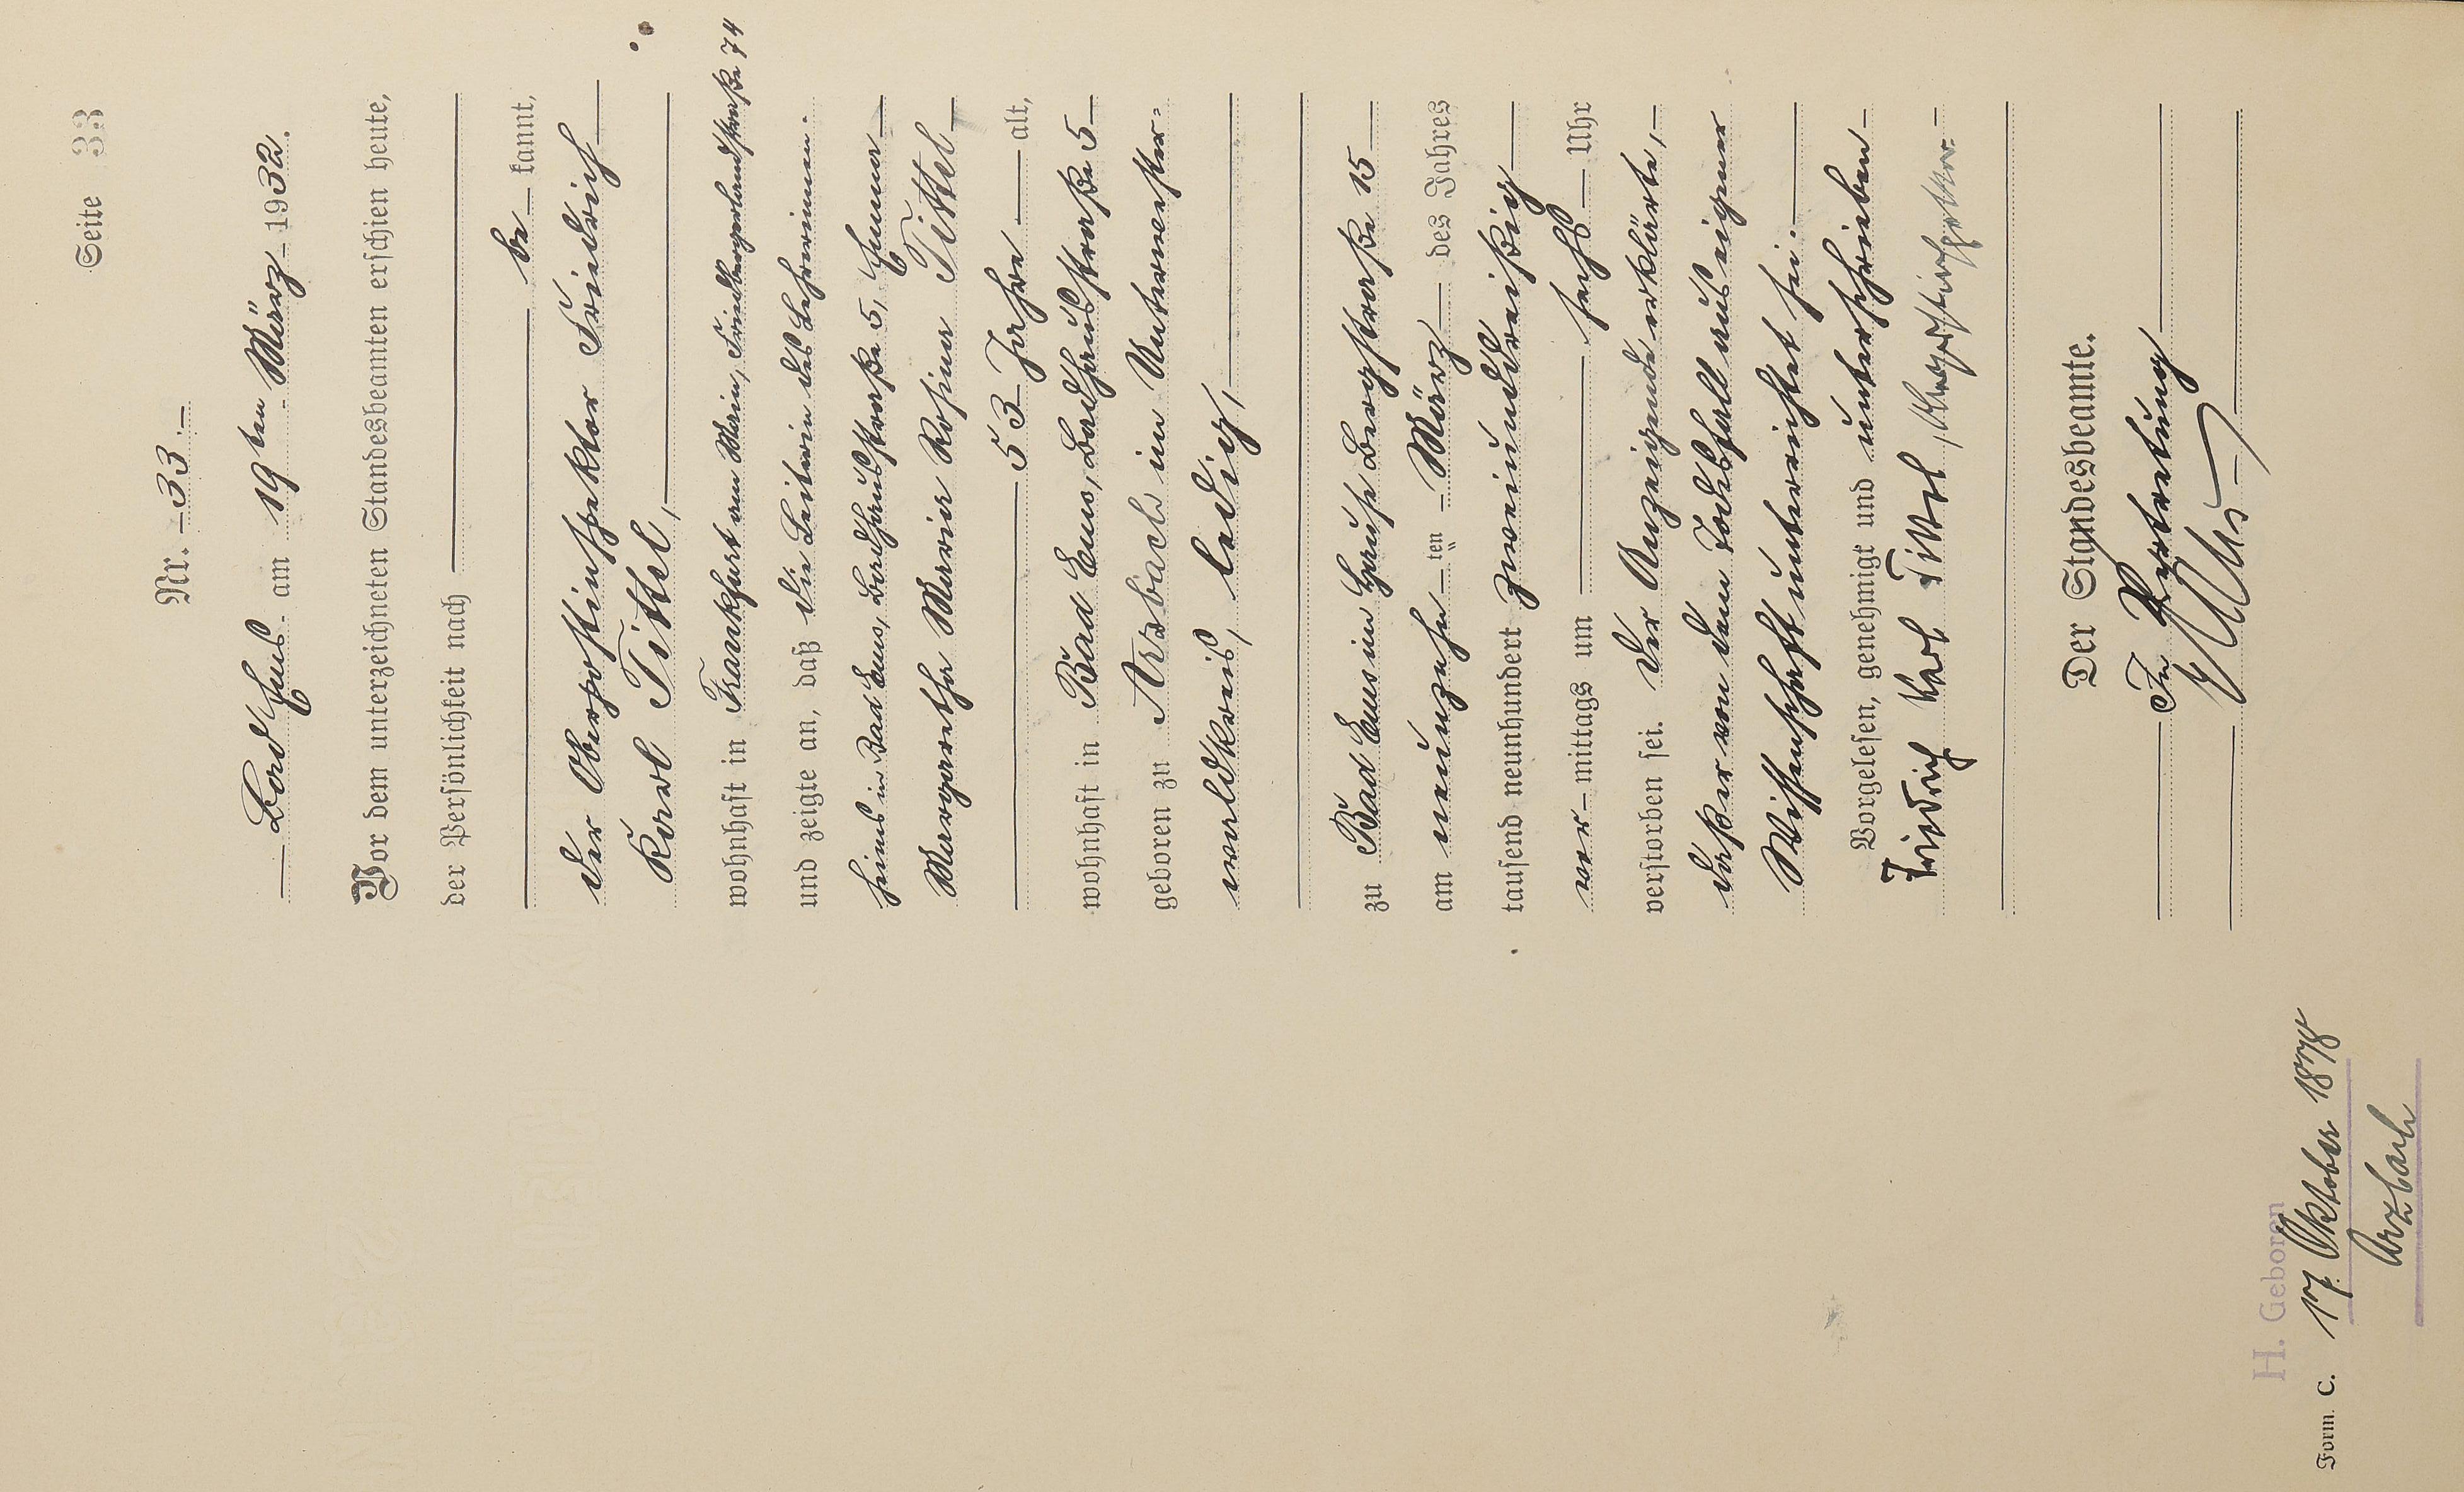 Seite 33
Nr. 33.
Bad Ems am 19ten März 1932.
Vor dem unterzeichneten Standesbeamten erschien heute,
der Persönlichkeit nach
be kannt,
der Oberpostinspektor Friedrich
Karl Tittel,
wohnhaft in Frankfurt am Main, Friedbergerlandstraße 74
und zeigte an, daß die Leiterin des Lehrerinnen-
heims in Bad Ems, Badhausstraße 5, Emma
Margarethe Maria Rosina Tittel
53 Jahre alt,
wohnhaft in Bad Ems, Badhausstraße 5
geboren zu Arzbach im Unterwester-
waldkreis, ledig,
zu Bad Ems im Hause Bergstraße 15
am neunzehn ten März des Jahres
tausend neunhundert zweiunddreißig
vor mittags um sechs Uhr
verstorben sei. Der Anzeigende erklärte,
daß er von dem Todesfall aus eigener
Wissenschaft unterrichtet sei.
Vorgelesen, genehmigt und unterschrieben
Friedrich Karl Tittel, Oberpostinspektor.
Der Standesbeamte.
In Vertretung
H. Geboren
Form. C. 17. Oktober 1878
Arzbach